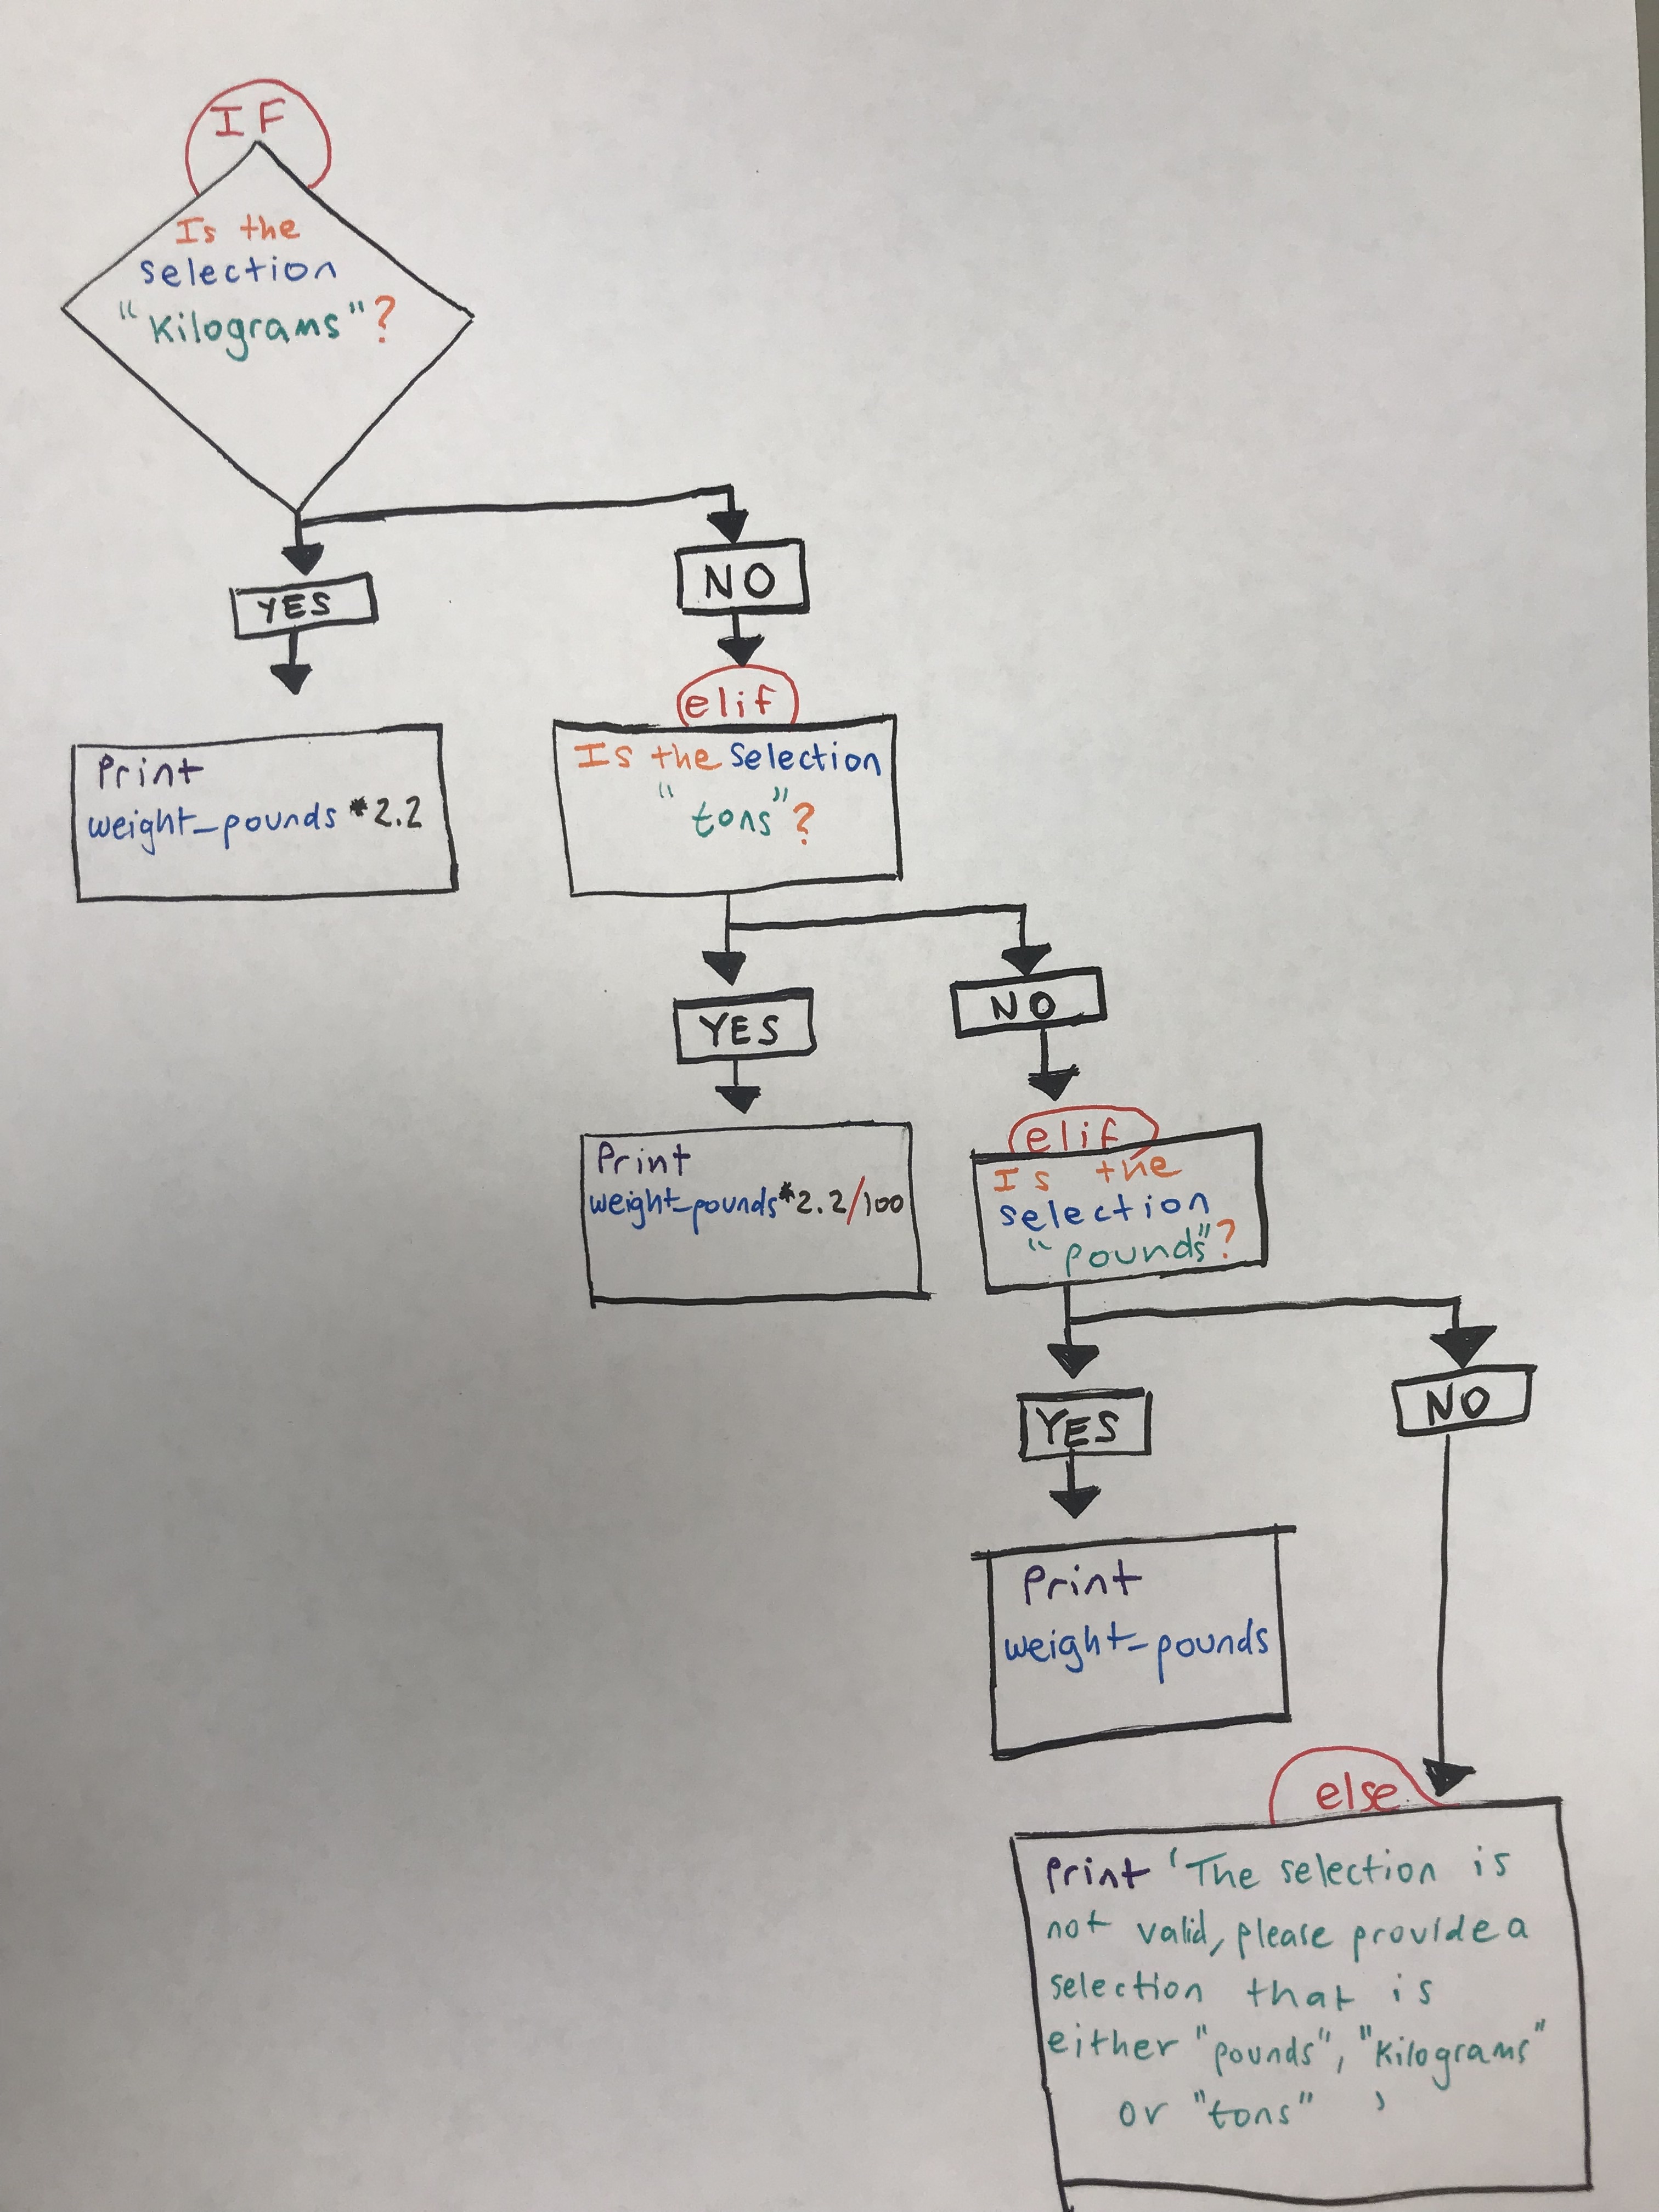 IF
Is the
selection
"Kilograms"?
YES
NO
Print
weight_pounds *2.2
elif
Is the selection
"tons"?
YES
NO
Print
weight_pounds*2.2/100
elif
Is the
selection
"pounds"?
YES
NO
Print
weight_pounds
else
Print 'The selection is
not valid, please provide a
selection that is
either "pounds", "Kilograms"
or "tons" '